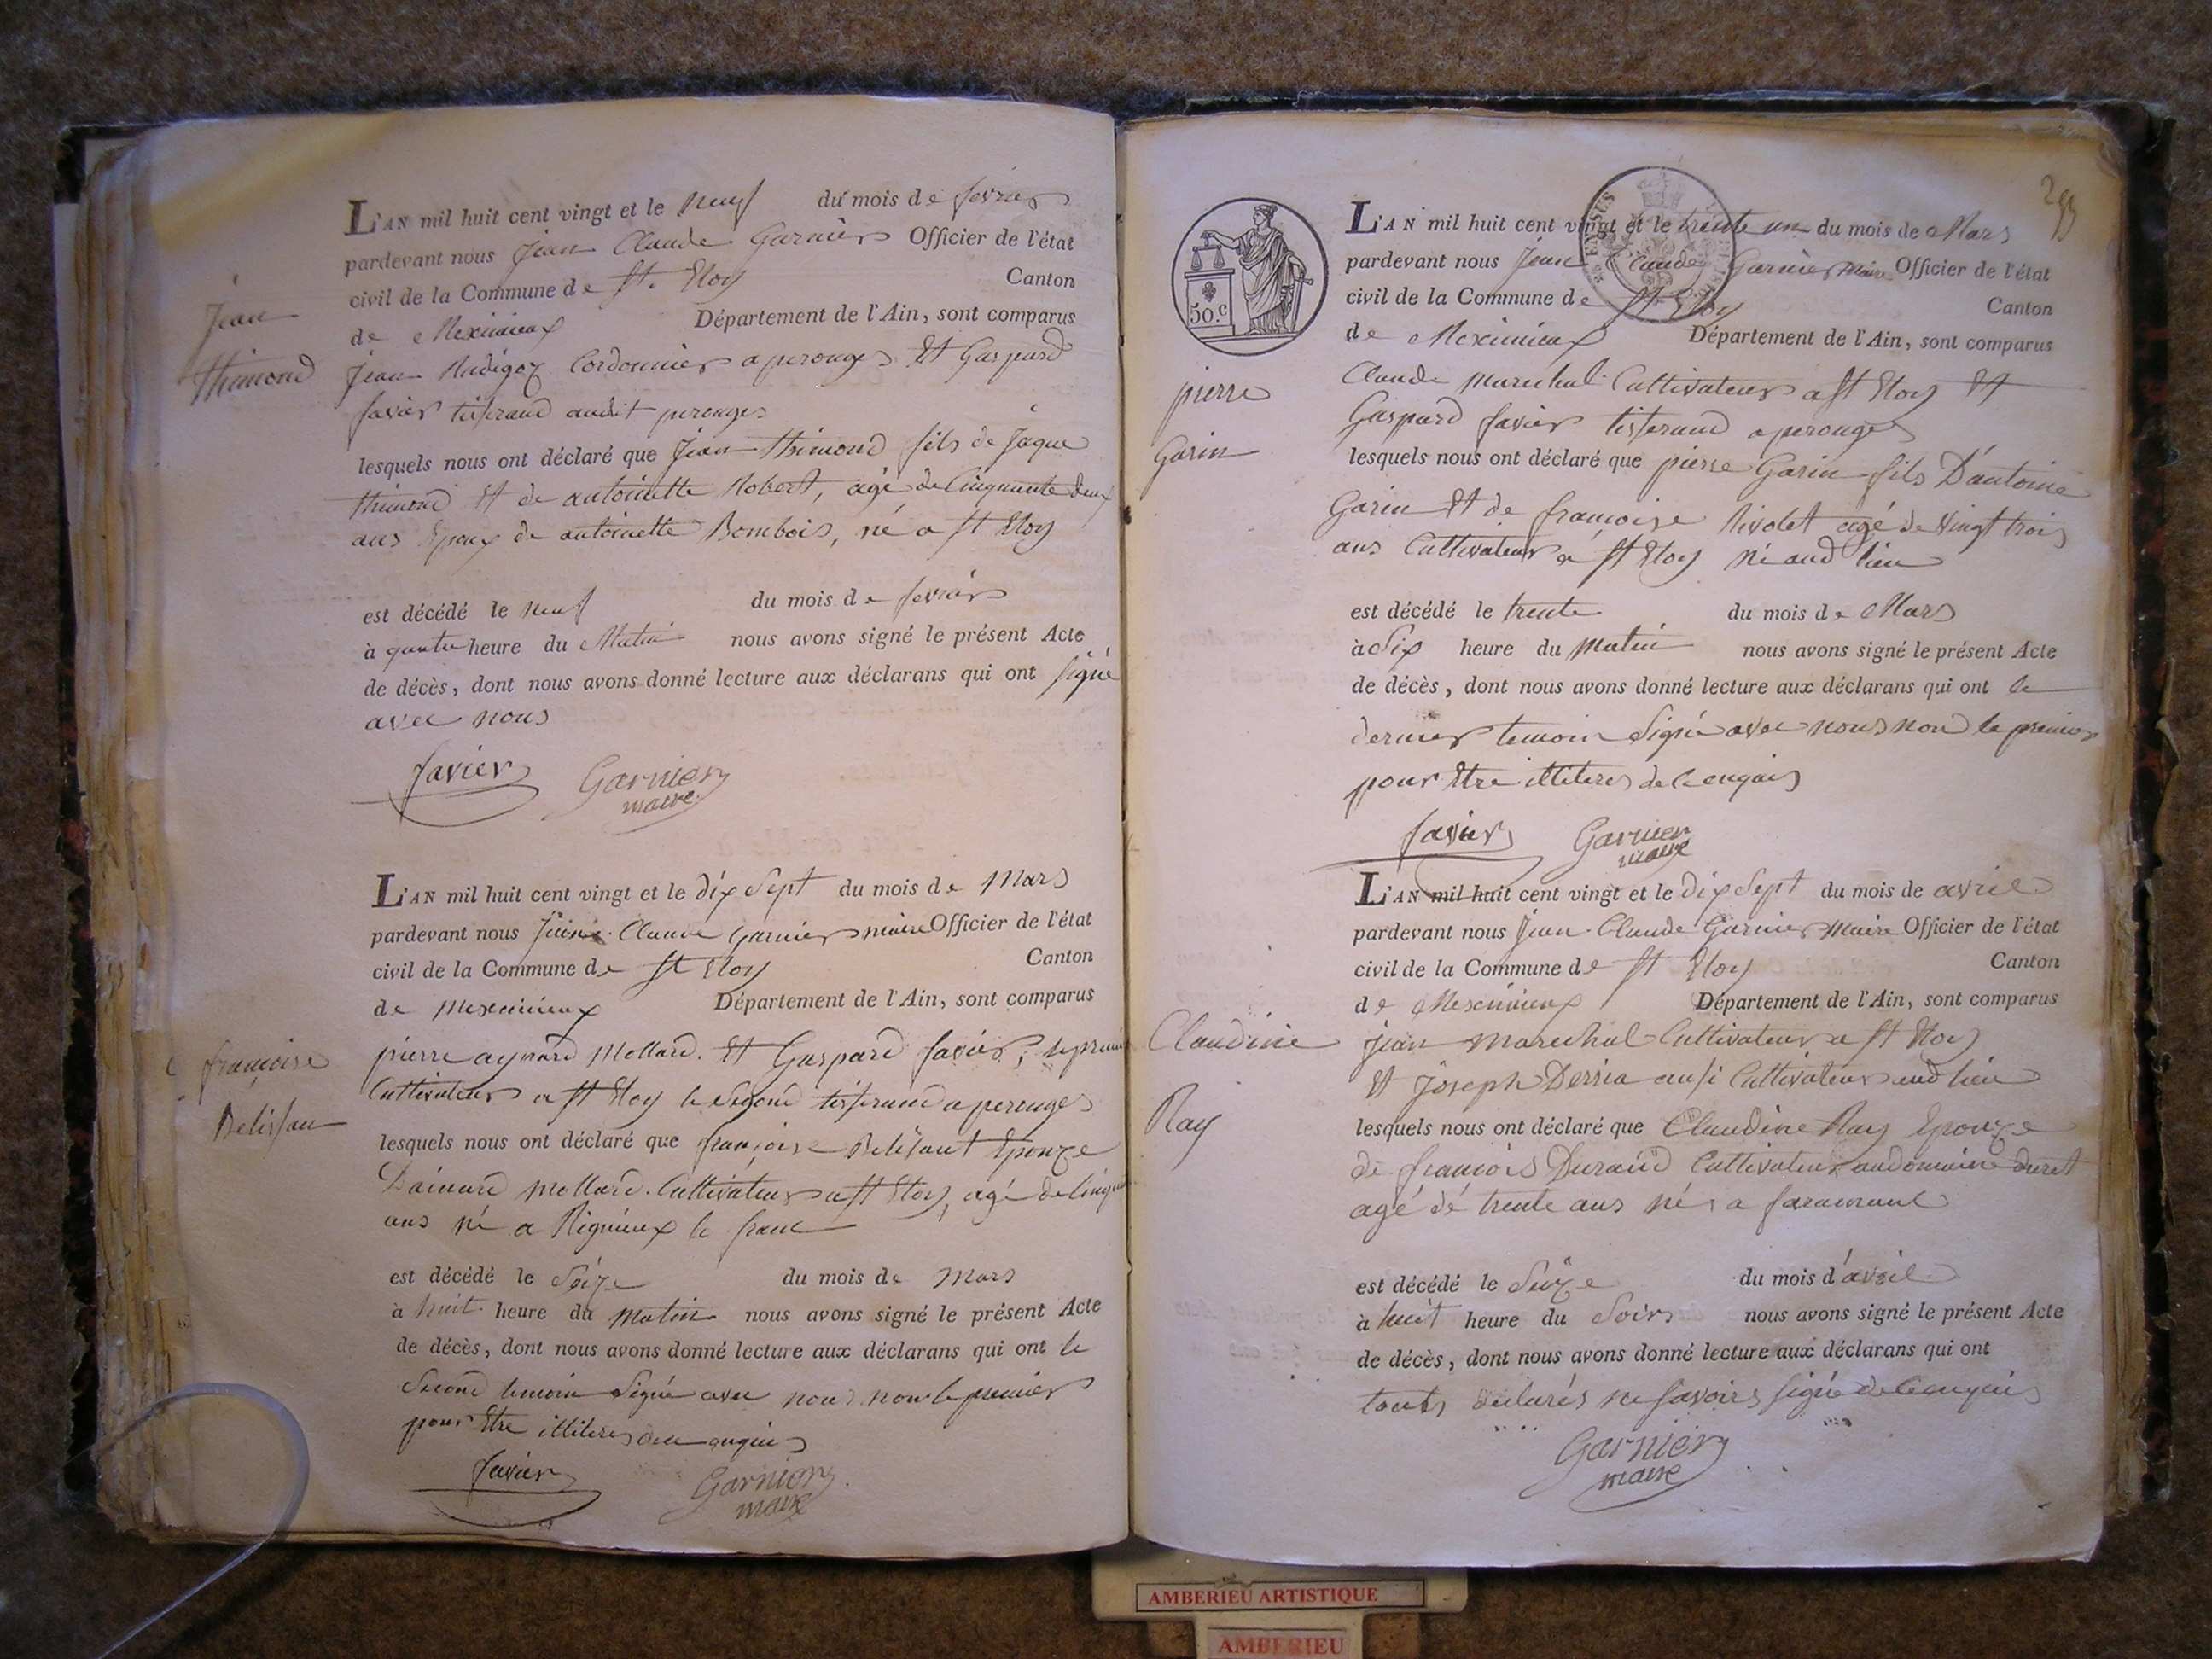 Jean
thimond
L'AN mil huit cent vingt et le neuf du mois de fevrier
pardevant nous Jean Claude Garnier Officier de l'état
civil de la Commune de St. Eloy Canton
de Meximieux Département de l'Ain, sont comparus
Jean Cordonnier a perouges Et Gaspard
favier tisserand audit perouges
lesquels nous ont déclaré que Jean thimond fils de Jaque
thimond Et de antoinette Robert, agé de Cinquante deux
ans Epoux de antoinette Bombois, né a st Eloy
est décédé le neuf du mois de fevrier
à quatre heure du Matin nous avons signé le présent Acte
de décès, dont nous avons donné lecture aux déclarans qui ont signé
avec nous
favier Garnier
maire
françoise
Belissan
L'AN mil huit cent vingt et le dix Sept du mois de Mars
pardevant nous Jean Claude Garnier maire Officier de l'état
civil de la Commune de st Eloy Canton
de Meximieux Département de l'Ain, sont comparus
pierre aymard Mollard. Et Gaspard favier, le premier
Cultivateur a st Eloy le Second tisserand a perouges
lesquels nous ont déclaré que françoise Belissant Epouze
Dainard Mollard. Cultivateur a st Eloy, agé de
ans né a Rignieux le franc
est décédé le Seize du mois de Mars
à huit heure du Matin nous avons signé le présent Acte
de décès, dont nous avons donné lecture aux déclarans qui ont le
Second temoin Signé avec nous non le premier
pour Etre illiteres de
favier Garnier
maire
293
50.c
pierre
Garin
L'AN mil huit cent vingt et le trente un du mois de Mars
pardevant nous Jean Claude Garnier Maire Officier de l'état
civil de la Commune de St Eloy Canton
de Meximieux Département de l'Ain, sont comparus
Claude marechal Cultivateur a st Eloy Et
Gaspard favier tisserand a perouges
lesquels nous ont déclaré que pierre Garin fils D'antoine
Garin Et de françoise Rivolet agé de Vingt trois
ans Cultivateur a st Eloy né aud lieu
est décédé le trente du mois de Mars
à Six heure du Matin nous avons signé le présent Acte
de décès, dont nous avons donné lecture aux déclarans qui ont le
dernier temoin Signé avec nous non le premier
pour Etre illiteres de
favier Garnier
maire
Claudine
Ray
L'AN mil huit cent vingt et le dix Sept du mois de avril
pardevant nous Jean Claude Garnier Maire Officier de l'état
civil de la Commune de st Eloy Canton
de Meximieux Département de l'Ain, sont comparus
jean marechal Cultivateur a st Eloy
Et Joseph Derria ausi Cultivateur aud lieu
lesquels nous ont déclaré que Claudine Ray Epouze
de françois Durand Cultivateur audomaine duret
agé dé trente ans né a faramand
est décédé le Seize du mois d'avril
à huit heure du Soir nous avons signé le présent Acte
de décès, dont nous avons donné lecture aux déclarans qui ont
touts declarés ne savoirs signé de
Garnier
maire
AMBERIEU ARTISTIQUE
AMBERIEU